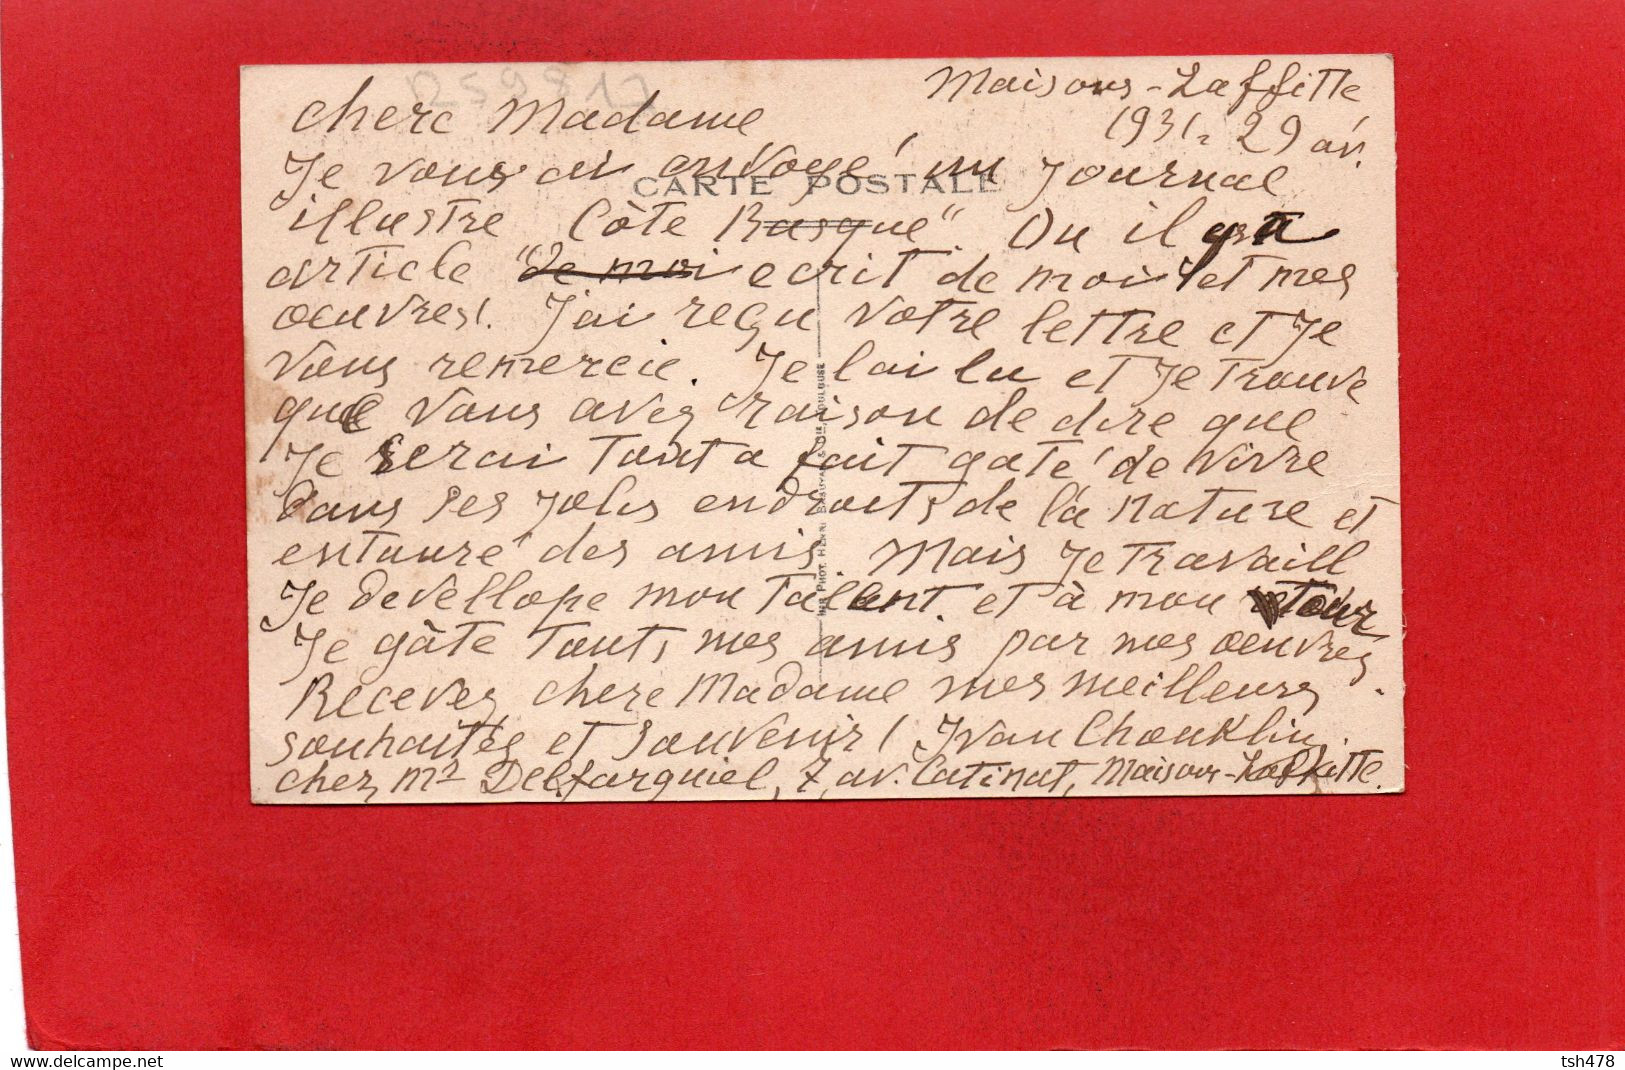 Maisons-Laffitte
1931. 29 av.
chere Madame
Je vous ai anvoyé un Journal
CARTE POSTALE
illustre Côte Basque" Ou il y a
article "de moi ecrit de moi et mes
oeuvres!. J'ai reçu votre lettre et Je
vous remercie. Je l'ai lu et Je trouve
que vous avez raison de dire que
Je serai tout a fait gaté de vivre
dans ses jolis endroits de la nature et
entouré des amis. Mais Je travaill
Je devellope mon talent et à mon retour
Je gâte touts mes amis par mes oeuvres.
Recevez chere Madame mes meilleurs
souhaites et souvenir! Ivan Choukline.
chez Mr Delfarguiel, 7, av. Catinat, Maisons-Laffitte.
IMP. PHOT. HENRI TOULOUSE
Voir l'original avec Delcampe.net
tsh478